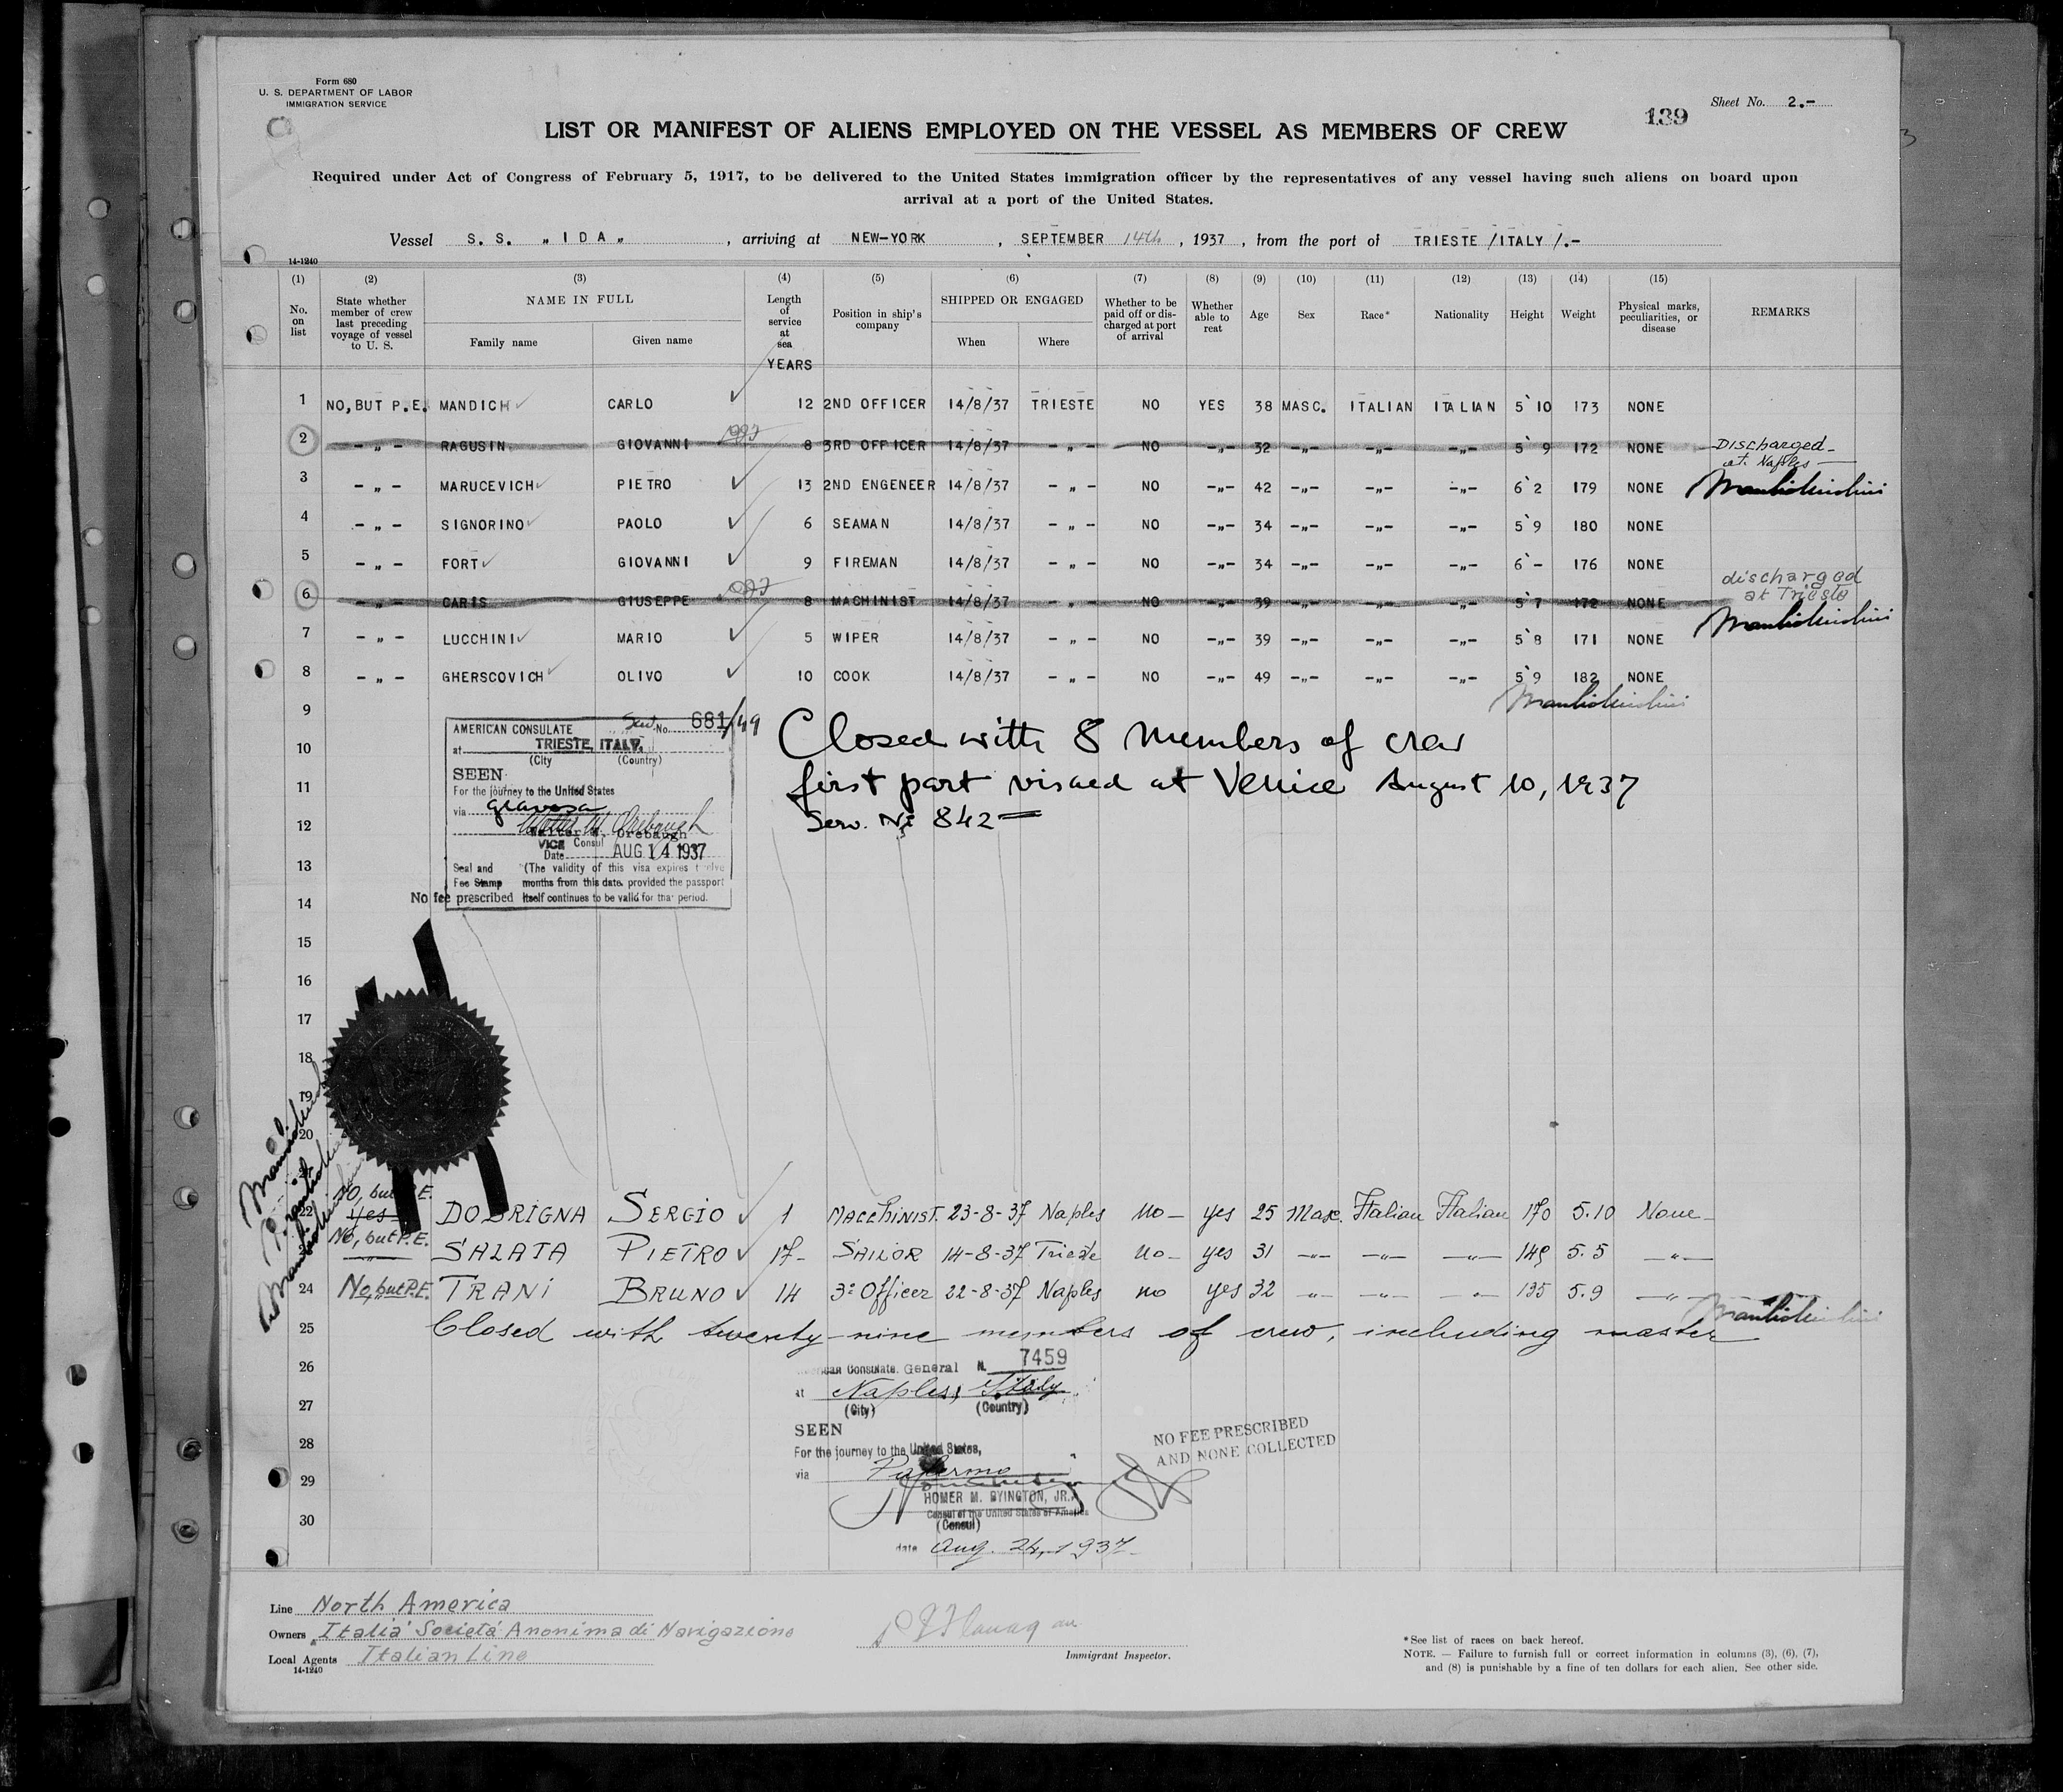 Form 680
U. S. DEPARTMENT OF LABOR
IMMIGRATION SERVICE
139
Sheet No. 2.-
LIST OR MANIFEST OF ALIENS EMPLOYED ON THE VESSEL AS MEMBERS OF CREW
Required under Act of Congress of February 5, 1917, to be delivered to the United States immigration officer by the representatives of any vessel having such aliens on board upon
arrival at a port of the United States.
Vessel S. S. „ I D A „ , arriving at NEW-YORK , SEPTEMBER 14th , 1937 , from the port of TRIESTE /ITALY /.-
14-1240
(1) (2) (3) (4) (5) (6) (7) (8) (9) (10) (11) (12) (13) (14) (15)
No. on list
State whether member of crew last preceding voyage of vessel to U. S.
NAME IN FULL
Family name
Given name
Length of service at sea
YEARS
Position in ship's company
SHIPPED OR ENGAGED
When
Where
Whether to be paid off or discharged at port of arrival
Whether able to reat
Age
Sex
Race*
Nationality
Height
Weight
Physical marks, peculiarities, or disease
REMARKS
1 NO, BUT P.E. MANDICH CARLO 12 2ND OFFICER 14/8/37 TRIESTE NO YES 38 MASC. ITALIAN ITALIAN 5`10 173 NONE
2 - „ - RAGUSIN GIOVANNI 8 3RD OFFICER 14/8/37 - „ - NO -„- 32 -„- -„- -„- 5 9 172 NONE Discharged
at Naples
3 - „ - MARUCEVICH PIETRO 13 2ND ENGENEER 14/8/37 - „ - NO -„- 42 -„- -„- -„- 6`2 179 NONE
4 - „ - SIGNORINO PAOLO 6 SEAMAN 14/8/37 - „ - NO -„- 34 -„- -„- -„- 5`9 180 NONE
5 - „ - FORT GIOVANNI 9 FIREMAN 14/8/37 - „ - NO -„- 34 -„- -„- -„- 6`- 176 NONE
6 - „ - CARIS GIUSEPPE 8 MACHINIST 14/8/37 - „ - NO -„- 39 -„- -„- -„- 5`7 172 NONE discharged
at Trieste
7 - „ - LUCCHINI MARIO 5 WIPER 14/8/37 - „ - NO -„- 39 -„- -„- -„- 5`8 171 NONE
8 - „ - GHERSCOVICH OLIVO 10 COOK 14/8/37 - „ - NO -„- 49 -„- -„- -„- 5`9 182 NONE
9
10
11
12
13
14
15
16
17
18
19
20
AMERICAN CONSULATE Serv. No. 681/49
at TRIESTE, ITALY.
(City (Country)
SEEN
For the journey to the United States
via gravosa
Walter W. Orebaugh
VICE Consul
Date AUG 14 1937
Seal and (The validity of this visa expires twelve
Fee Stamp months from this date, provided the passport
No fee prescribed itself continues to be valid for that period.
Closed with 8 members of crew
first part visaed at Venice August 10, 1937
Serv. No 842
No, but P.E.
22 Yes DOBRIGNA SERGIO 1 MACCHINIST. 23-8-37 Naples no- yes 25 Masc. Italian Italian 170 5.10 None-
No, but P.E.
SALATA PIETRO 17- SAILOR 14-8-37 Trieste no- yes 31 -„- -„- -„- 149 5.5 -„-
24 No, but P.E. TRANI BRUNO 14 3º Officer 22-8-37 Naples no yes 32 -„- -„- -„- 135 5.9 -„-
25 Closed with twenty-nine members of crew, including master
26
27
28
29
30
American Consulate General N. 7459
at Naples, Italy
(City) (Country)
SEEN
For the journey to the United States,
via Palermo
HOMER M. BYINGTON, JR.
Consul of the United States of America
(Consul)
date Aug. 24, 1937
NO FEE PRESCRIBED
AND NONE COLLECTED
Line North America
Owners "Italia" Società Anonima di Navigazione
Local Agents Italian Line
14-1240
Immigrant Inspector.
*See list of races on back hereof.
NOTE. — Failure to furnish full or correct information in columns (3), (6), (7),
and (8) is punishable by a fine of ten dollars for each alien. See other side.